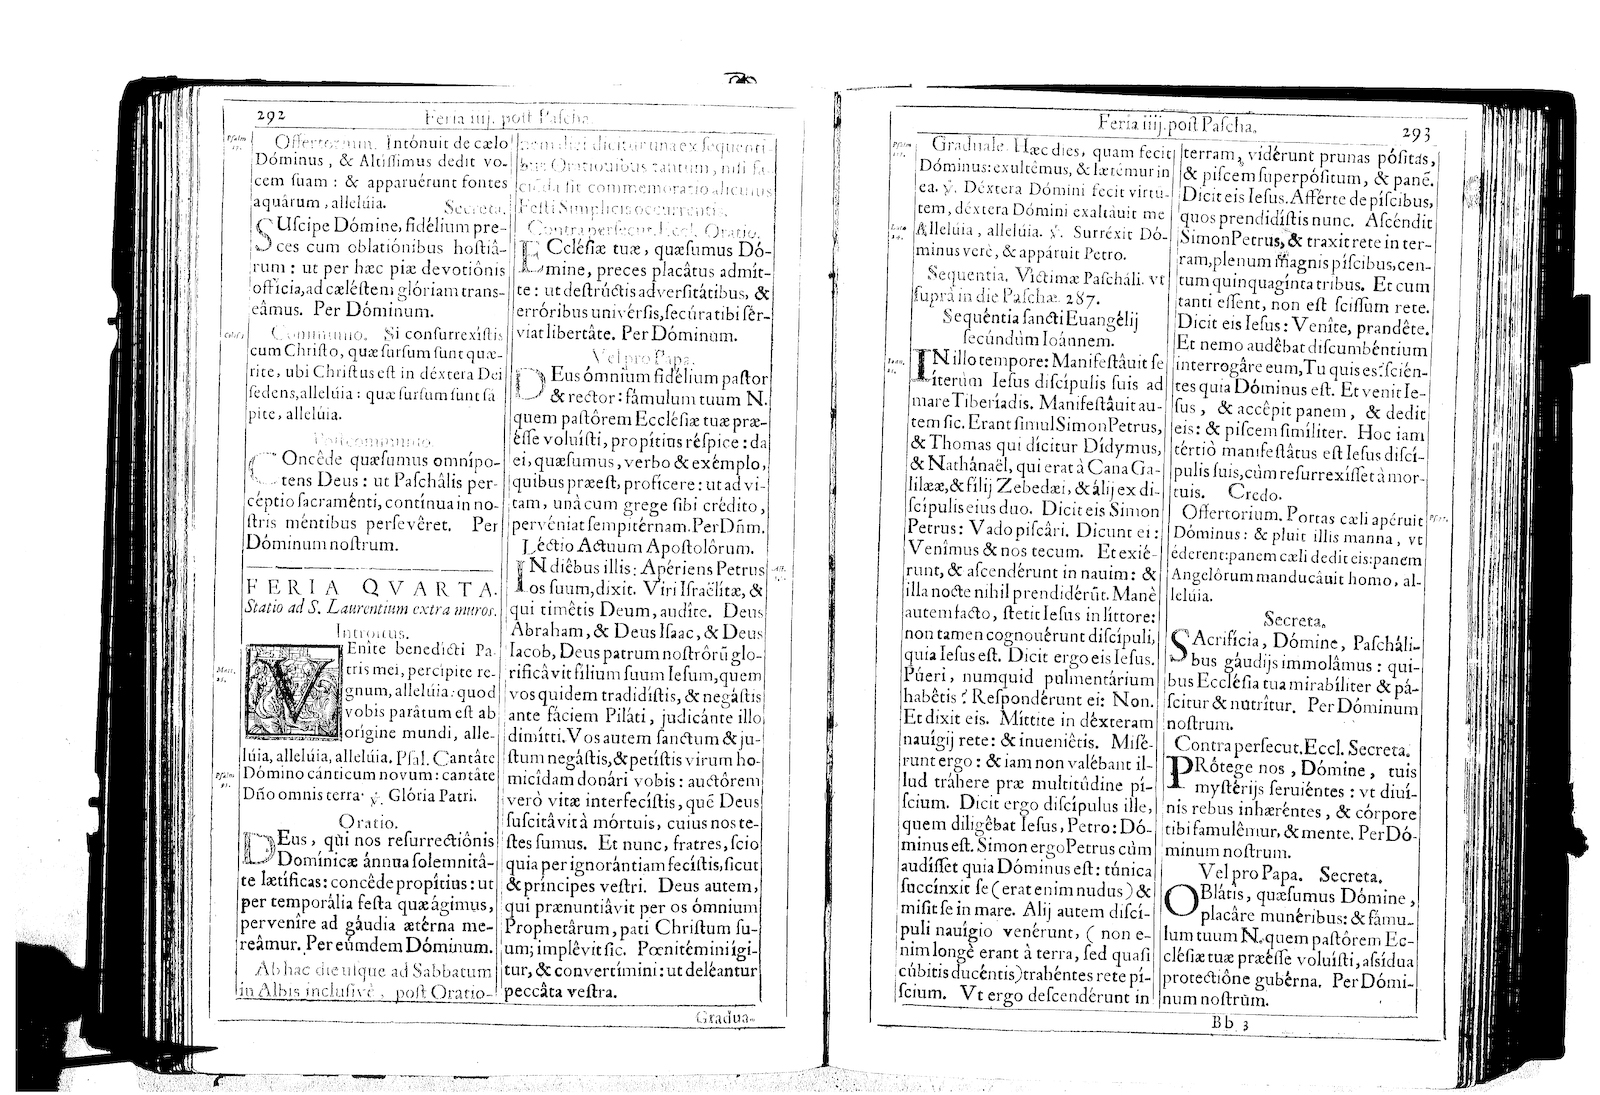 292
Feria iiij. post Pascha.
Offertorium. Intónuit de cælo
Dóminus, & Altissimus dedit vo-
cem suam : & apparuérunt fontes
aquárum, allelúia. Secreta.
SUscipe Dómine, fidélium pre-
ces cum oblatiónibus hostiâ-
rum : ut per hæc piæ devotiônis
officia, ad cæléstem glóriam trans-
eâmus. Per Dóminum.
Communio. Si consurrexístis
cum Christo, quæ sursum sunt quæ-
rite, ubi Christus est in déxtera Dei
sedens, allelúia : quæ sursum sunt sá
pite, allelúia.
Postcommunio.
COncêde quæsumus omnípo-
tens Deus : ut Paschâlis per-
céptio sacraménti, contínua in no-
stris méntibus persevêret. Per
Dóminum nostrum.
FERIA QVARTA.
Statio ad S. Laurentium extra muros.
Introitus.
VEnîte benedícti Pa-
tris mei, percípite re-
gnum, allelúia: quod
vobis parâtum est ab
orígine mundi, alle-
lúia, allelúia, allelúia. Psal. Cantâte
Dómino cánticum novum: cantâte
Dño omnis terra. ℣. Glória Patri.
Oratio.
DEus, qui nos resurrectiônis
Domínicæ ánnua solemnitâ-
te lætíficas: concêde propítius: ut
per temporália festa quæ ágimus,
pervenîre ad gáudia ætérna me-
reâmur. Per eúmdem Dóminum.
Ab hac die usque ad Sabbatum
in Albis inclusivè, post Oratio-
nem diei dicitur una ex sequenti-
bus Orationibus tantum, nisi fa-
cienda sit commemoratio alicuius
Festi Simplicis occurrentis.
Contra persecut. Eccl. Oratio.
ECclésiæ tuæ, quæsumus Dó-
mine, preces placâtus admít-
te : ut destrúctis adversitâtibus, &
errôribus univérsis, secúra tibi sér-
viat libertâte. Per Dóminum.
Vel pro Papa.
DEus ómnium fidélium pastor
& rector : fámulum tuum N.
quem pastôrem Ecclésiæ tuæ præ-
ésse voluísti, propítius réspice : da
ei, quæsumus, verbo & exémplo,
quibus præest, profícere : ut ad vi-
tam, unà cum grege sibi crédito,
pervéniat sempitérnam. Per Dñm.
Léctio Actuum Apostolôrum.
IN diêbus illis : Apériens Petrus
os suum, dixit. Viri Israëlítæ, &
qui timêtis Deum, audíte. Deus
Abraham, & Deus Isaac, & Deus
Iacob, Deus patrum nostrôrũ glo-
rificâvit fílium suum Iesum, quem
vos quidem tradidístis, & negástis
ante fáciem Piláti, judicánte illo
dimítti. Vos autem sanctum & ju-
stum negástis, & petístis virum ho-
micîdam donári vobis : auctôrem
verò vitæ interfecístis, quẽ Deus
suscitâvit à mórtuis, cuius nos te-
stes sumus. Et nunc, fratres, scio
quia per ignorántiam fecístis, sicut
& príncipes vestri. Deus autem,
qui prænuntiâvit per os ómnium
Prophetârum, pati Christum su-
um; implêvit sic. Pœnitémini ígi-
tur, & convertímini : ut deléantur
peccâta vestra.
Gradua-
Feria iiij. post Pascha.
293
Graduale. Hæc dies, quam fecit
Dóminus: exultémus, & lætémur in
ea. ℣. Déxtera Dómini fecit virtú-
tem, déxtera Dómini exaltáuit me
Allelúia, allelúia. ℣. Surréxit Dó-
minus verè, & appáruit Petro.
Sequentia. Víctimæ Pascháli. vt
suprà in die Paschæ. 287.
Sequéntia sancti Euangélij
secúndùm Ioánnem.
IN illo tempore: Manifestâuit se
íterùm Iesus discípulis suis ad
mare Tiberíadis. Manifestâuit au-
tem sic. Erant simul Simon Petrus,
& Thomas qui dícitur Dídymus,
& Nathánaël, qui erat à Cana Ga-
lilææ, & fílij Zebedæi, & álij ex di-
scípulis eius duo. Dicit eis Simon
Petrus: Vado piscâri. Dicunt ei :
Venîmus & nos tecum. Et exié-
runt, & ascendérunt in nauim : &
illa nocte nihil prendidérũt. Manè
autem facto, stetit Iesus in líttore:
non tamen cognouérunt discípuli,
quia Iesus est. Dicit ergo eis Iesus.
Púeri, numquid pulmentárium
habêtis ? Respondérunt ei: Non.
Et dixit eis. Míttite in déxteram
nauígij rete: & inueniêtis. Misé-
runt ergo : & iam non valébant il-
lud tráhere præ multitúdine pí-
scium. Dicit ergo discípulus ille,
quem diligêbat Iesus, Petro: Dó-
minus est. Simon ergo Petrus cùm
audísset quia Dóminus est : túnica
succínxit se (erat enim nudus) &
misit se in mare. Alij autem discí-
puli nauígio venérunt, ( non e-
nim longè erant à terra, sed quasi
cúbitis ducéntis) trahéntes rete pí-
scium. Vt ergo descendérunt in
terram, vidérunt prunas pósitas,
& piscem superpósitum, & panẽ.
Dicit eis Iesus. Afférte de píscibus,
quos prendidístis nunc. Ascéndit
Simon Petrus, & traxit rete in ter-
ram, plenum magnis píscibus, cen-
tum quinquagínta tribus. Et cum
tanti essent, non est scissum rete.
Dicit eis Iesus : Venîte, prandête.
Et nemo audêbat discumbéntium
interrogâre eum, Tu quis es? scién-
tes quia Dóminus est. Et venit Ie-
sus, & accêpit panem, & dedit
eis: & piscem simíliter. Hoc iam
tértiò manifestâtus est Iesus discí-
pulis suis, cùm resurrexísset à mor-
tuis. Credo.
Offertorium. Portas cæli apéruit
Dóminus : & pluit illis manna, vt
éderent: panem cæli dedit eis: panem
Angelórum manducáuit homo, al-
lelúia.
Secreta.
SAcrifícia, Dómine, Pascháli-
bus gáudijs immolâmus : qui-
bus Ecclésia tua mirabíliter & pá-
scitur & nutrítur. Per Dóminum
nostrum.
Contra persecut. Eccl. Secreta.
PRótege nos, Dómine, tuis
mystérijs seruiéntes : vt diuí-
nis rebus inhæréntes, & córpore
tibi famulêmur, & mente. Per Dó-
minum nostrum.
Vel pro Papa. Secreta.
OBlâtis, quæsumus Dómine,
placâre munéribus: & fámu-
lum tuum N. quem pastôrem Ec-
clésiæ tuæ præésse voluísti, assídua
protectiône gubérna. Per Dómi-
num nostrùm.
Bb 3